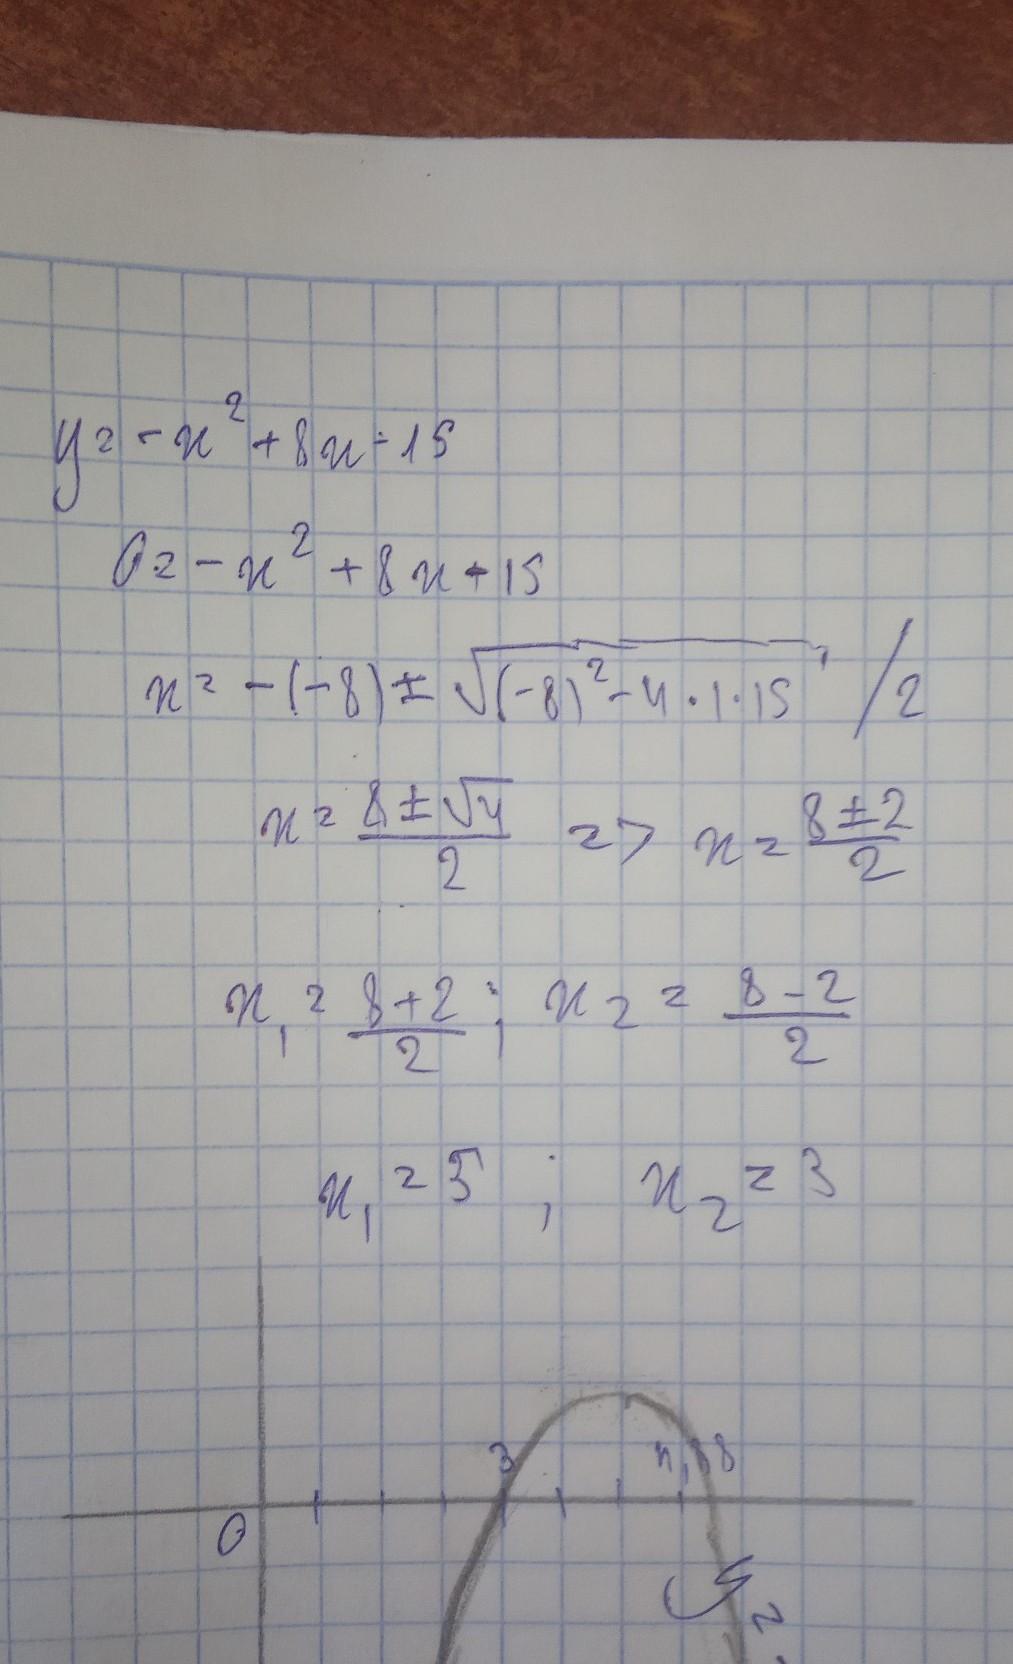 y = -x² + 8x - 15
0 = -x² + 8x + 15
x = -(-8) ± √(-8)² - 4 · 1 · 15 / 2
x = (8 ± √4)/2 => x = (8 ± 2)/2
x₁ = (8 + 2)/2 ; x₂ = (8 - 2)/2
x₁ = 5 ; x₂ = 3
3
0